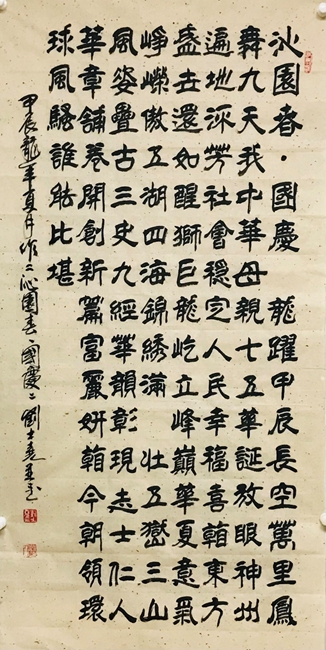 沁園春·國慶 龍躍甲辰長空萬里鳳
舞九天我中華母親七五華誕放眼神州
遍地流芳社會穩定人民幸福喜東方
盛去還如醒獅巨龍屹立峰巔華夏意氣
崢嶸傲五湖四海錦綉滿 壯五嶽三山
風姿疊古三史九經華韻彰現志士仁人
華章鋪卷開創新篇富麗妍今朝領環
球風騷誰能比堪
甲辰龍年夏月作沁園春國慶劉士堯